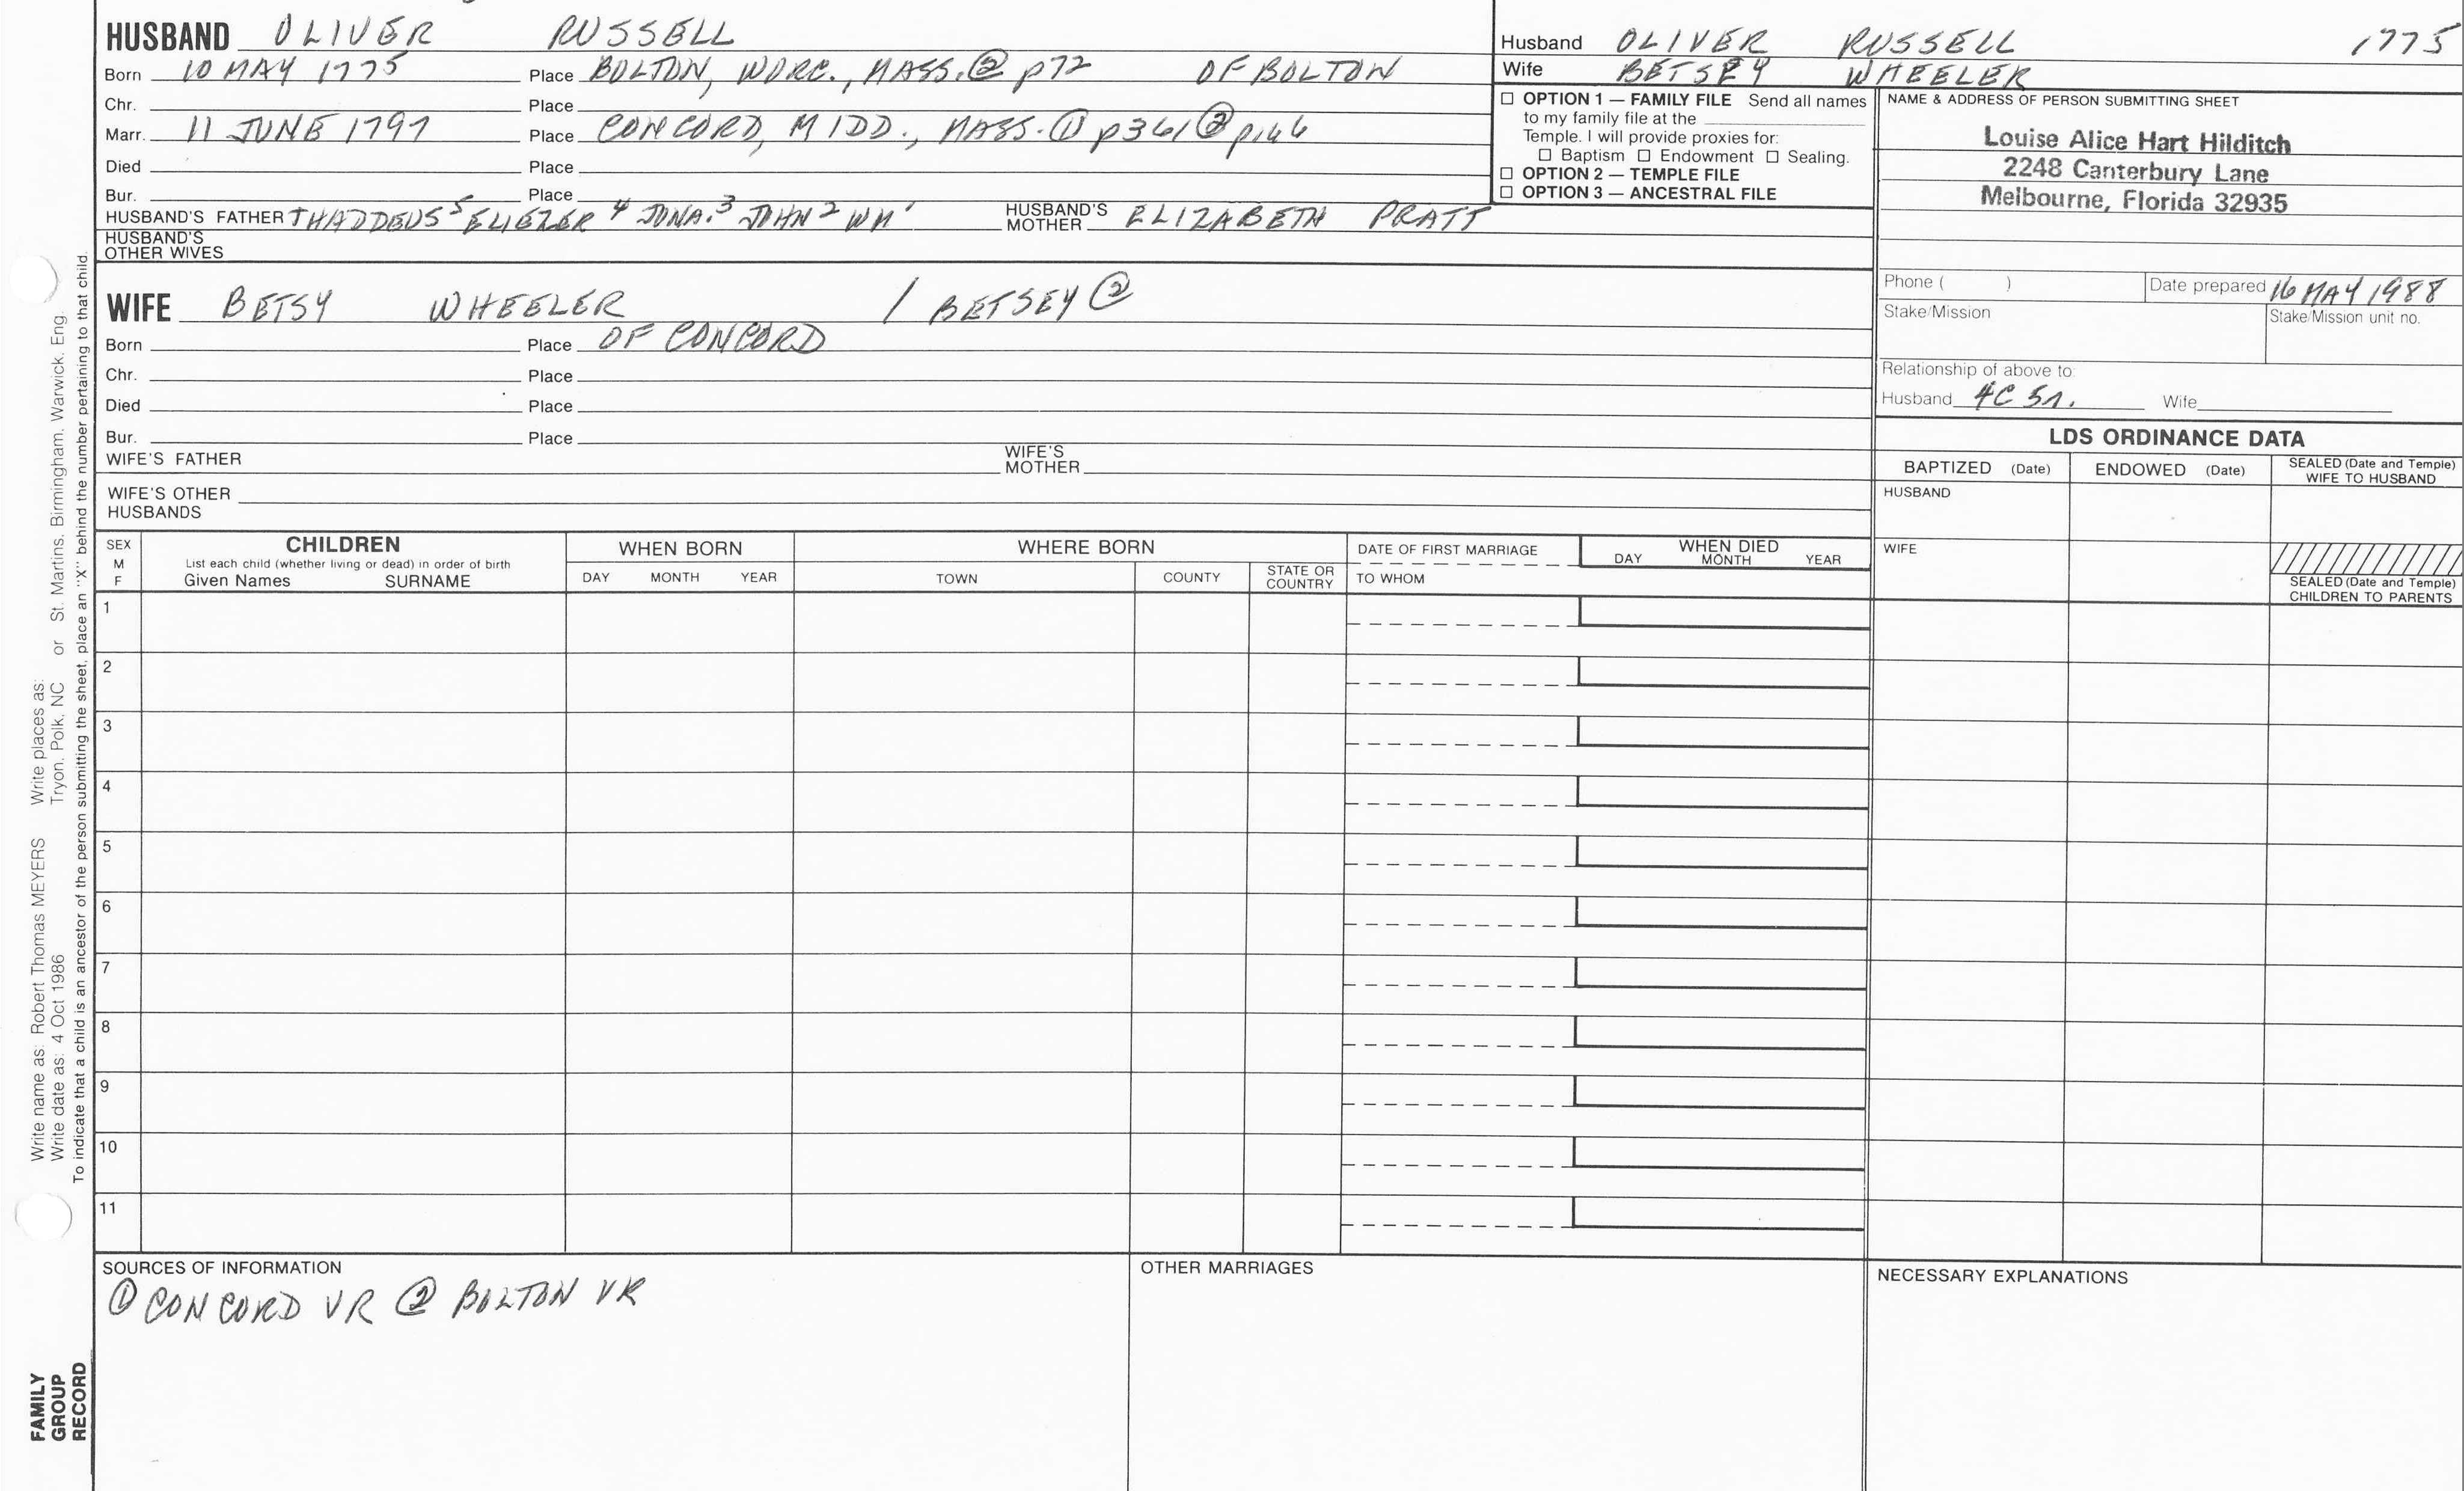 HUSBAND OLIVER RUSSELL
Born 10 MAY 1775 Place BOLTON, WORC., MASS. ② p72 OF BOLTON
Chr. Place
Marr. 11 JUNE 1797 Place CONCORD, MIDD., MASS. ① p361 ② p166
Died Place
Bur. Place
HUSBAND'S FATHER THADDEUS⁵ ELIEZER⁴ JONA.³ JOHN² WM¹ HUSBAND'S MOTHER ELIZABETH PRATT
HUSBAND'S OTHER WIVES
Husband OLIVER RUSSELL 1775
Wife BETSEY WHEELER
☐ OPTION 1 — FAMILY FILE Send all names
to my family file at the
Temple. I will provide proxies for:
☐ Baptism ☐ Endowment ☐ Sealing.
☐ OPTION 2 — TEMPLE FILE
☐ OPTION 3 — ANCESTRAL FILE
NAME & ADDRESS OF PERSON SUBMITTING SHEET
Louise Alice Hart Hilditch
2248 Canterbury Lane
Melbourne, Florida 32935
Phone ( ) Date prepared 16 MAY 1988
Stake/Mission Stake/Mission unit no.
Relationship of above to:
Husband 4C 5r. Wife
WIFE BETSY WHEELER / BETSEY ②
Born Place OF CONCORD
Chr. Place
Died Place
Bur. Place
WIFE'S FATHER WIFE'S MOTHER
WIFE'S OTHER HUSBANDS
LDS ORDINANCE DATA
BAPTIZED (Date) ENDOWED (Date) SEALED (Date and Temple) WIFE TO HUSBAND
HUSBAND
WIFE
SEALED (Date and Temple) CHILDREN TO PARENTS
SEX M F
CHILDREN
List each child (whether living or dead) in order of birth
Given Names SURNAME
WHEN BORN
DAY MONTH YEAR
WHERE BORN
TOWN COUNTY STATE OR COUNTRY
DATE OF FIRST MARRIAGE
TO WHOM
WHEN DIED
DAY MONTH YEAR
1
2
3
4
5
6
7
8
9
10
11
SOURCES OF INFORMATION
① CONCORD VR ② BOLTON VR
OTHER MARRIAGES
NECESSARY EXPLANATIONS
Write name as: Robert Thomas MEYERS Write places as:
Write date as: 4 Oct 1986 Tryon, Polk, NC or St. Martins, Birmingham, Warwick, Eng.
To indicate that a child is an ancestor of the person submitting the sheet, place an "X" behind the number pertaining to that child.
FAMILY
GROUP
RECORD